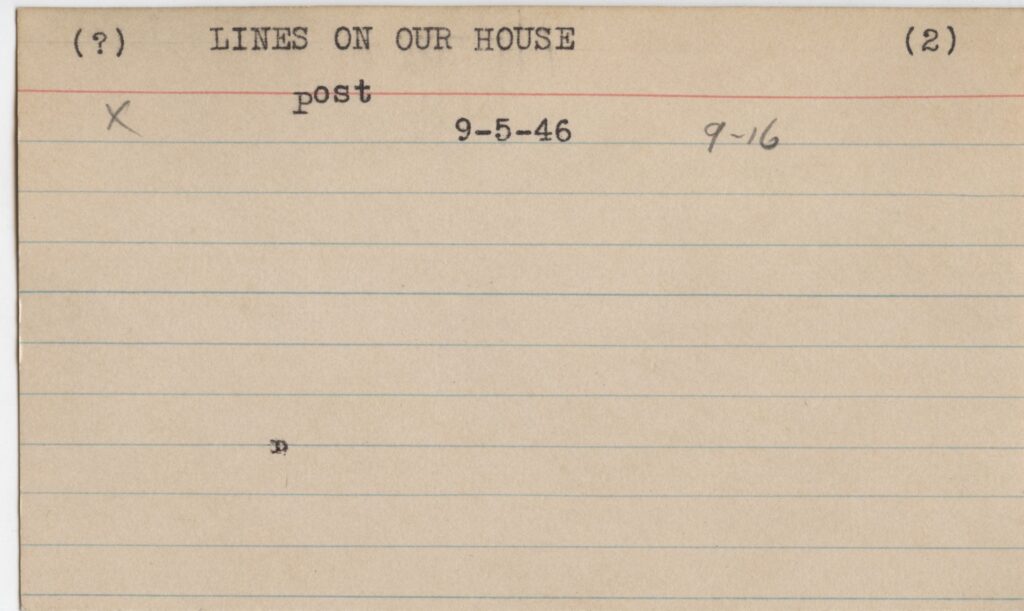 (?) LINES ON OUR HOUSE (2)
post
X 9-5-46 9-16